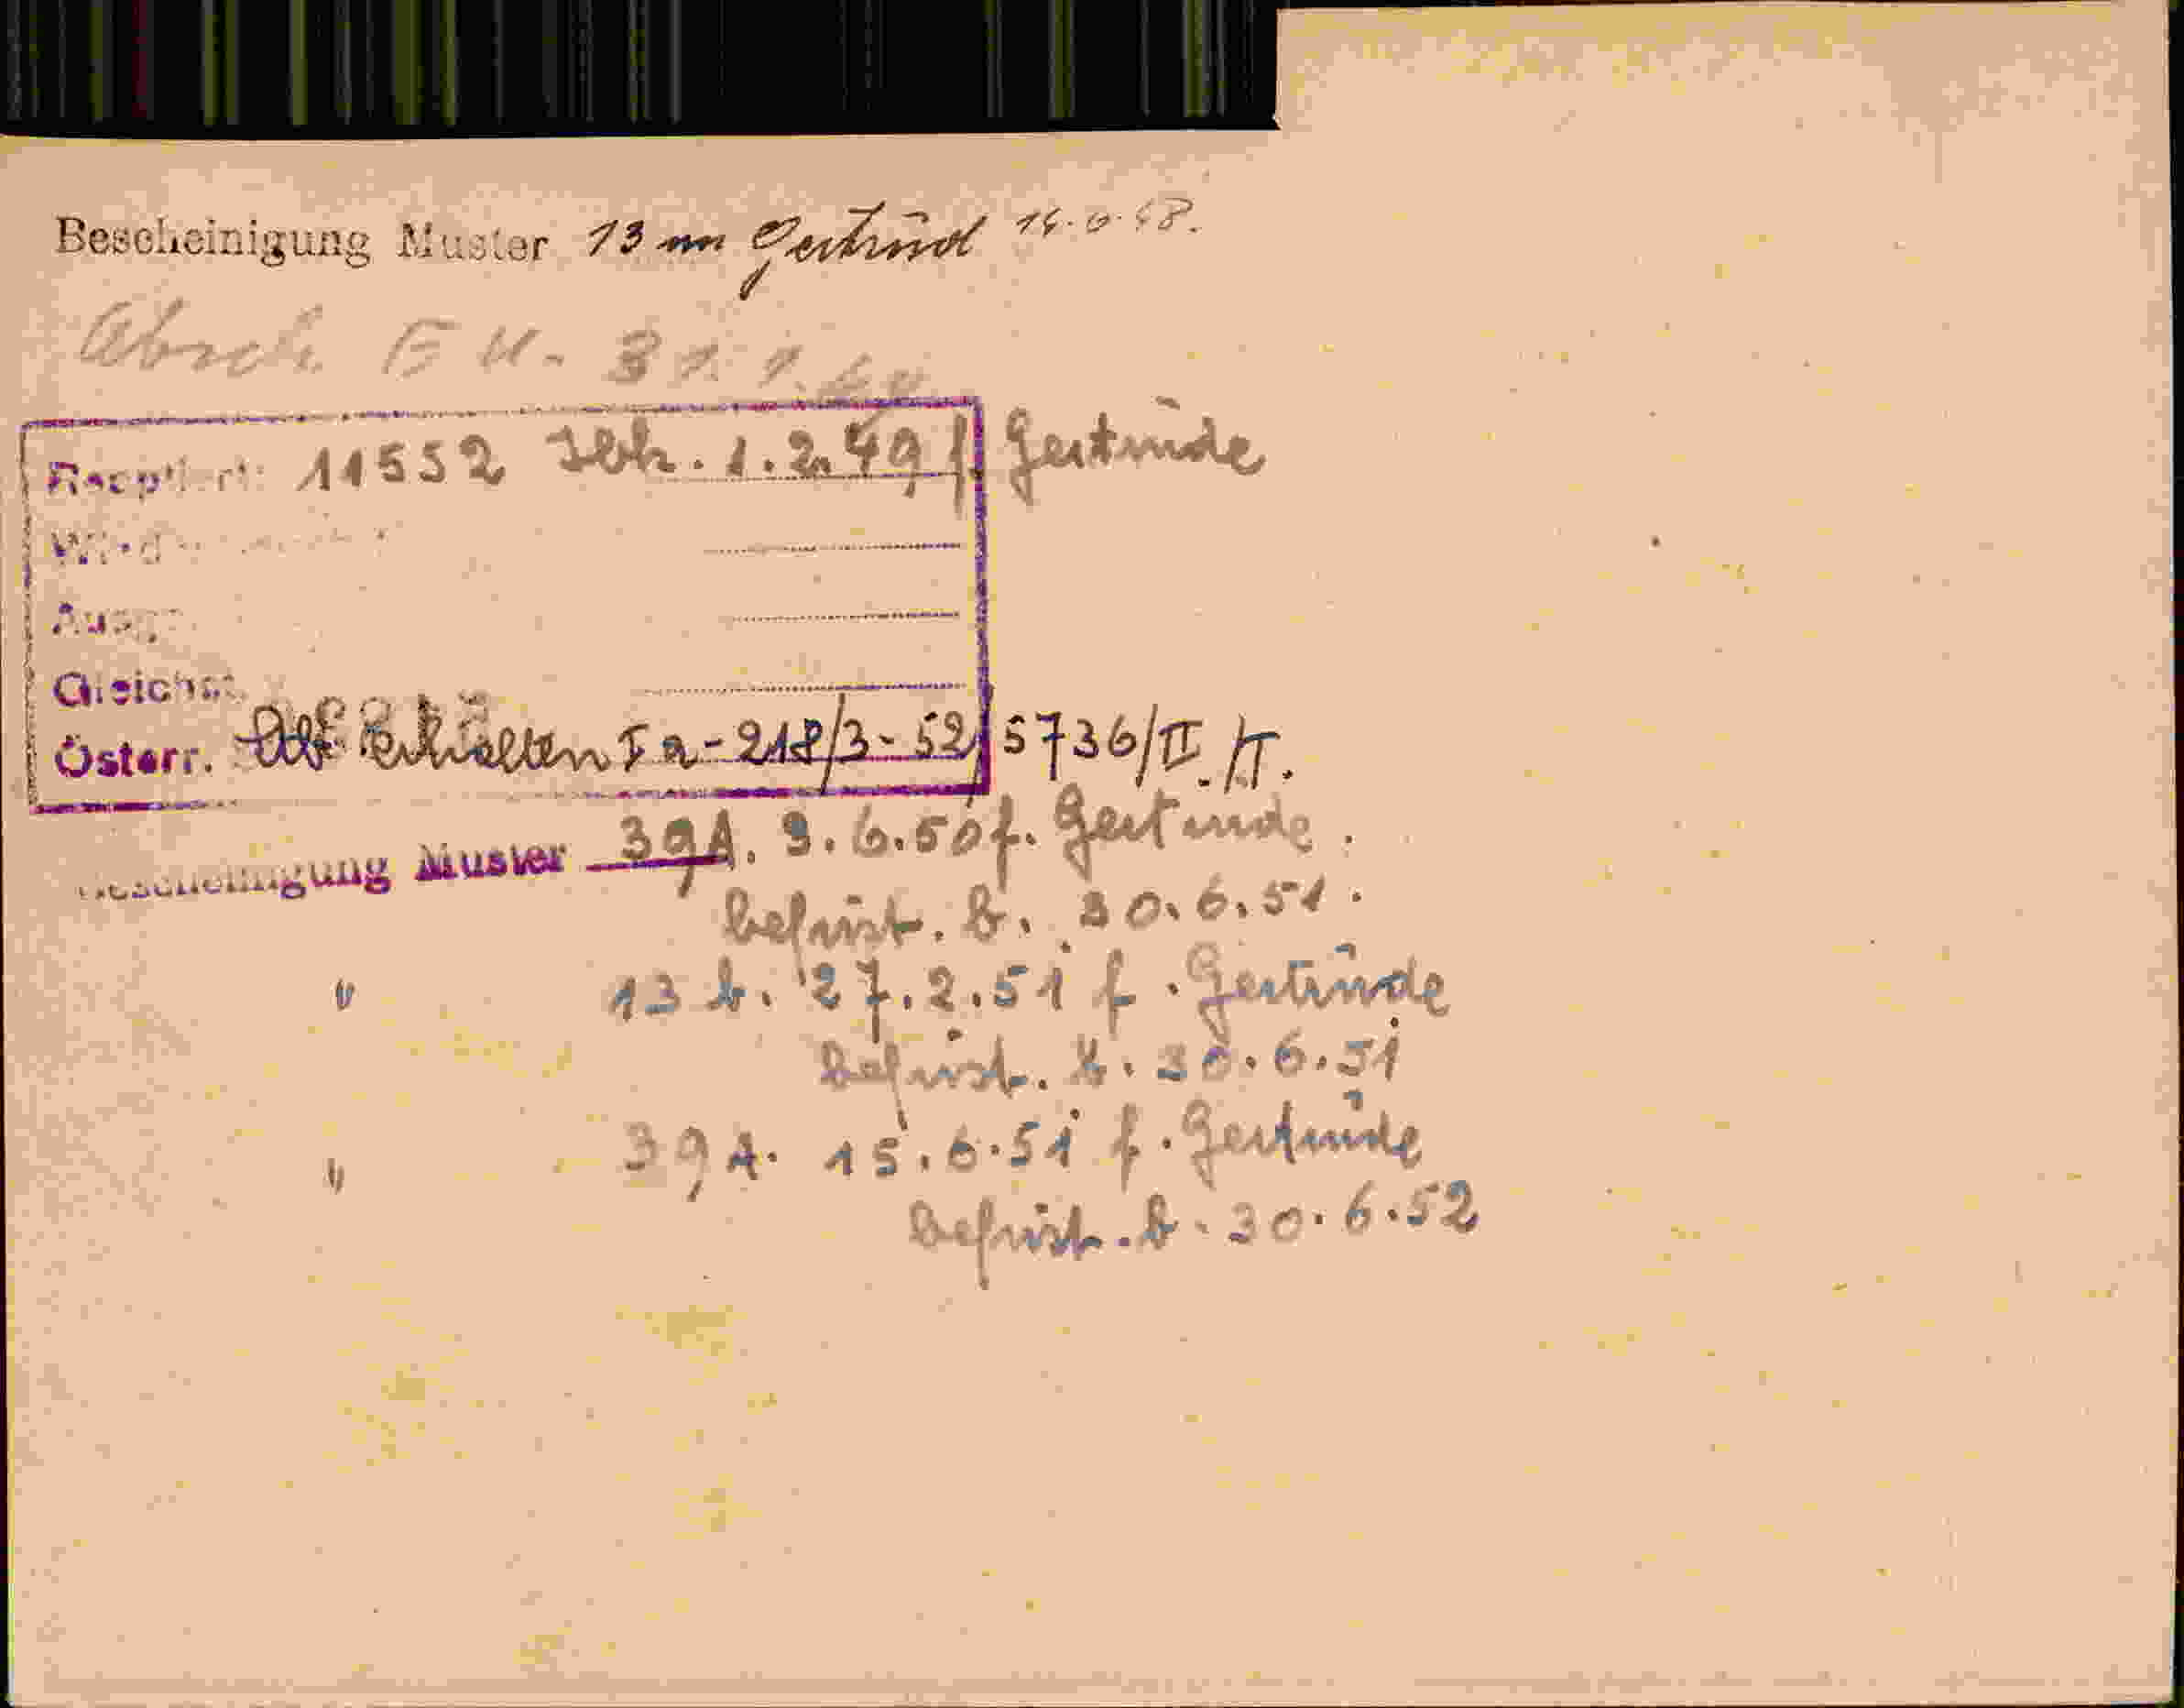 Bescheinigung Muster 13 an Gertrud 14.6.48.
Absch. E K. 31. 1.
Reoptiert: 11552 Ibk. 1.2.49 f. Gertrude
Österr. Stb. erhalten I a - 218/3 - 52/5736/II./T.
Bescheinigung Muster 39A. 9.6.50 f. Gertrude.
befrist. b. 30.6.51.
" 13 b. 27.2.51 f. Gertrude
befrist. b. 30.6.51
" 39A. 15.6.51 f. Gertrude
befrist. b. 30.6.52